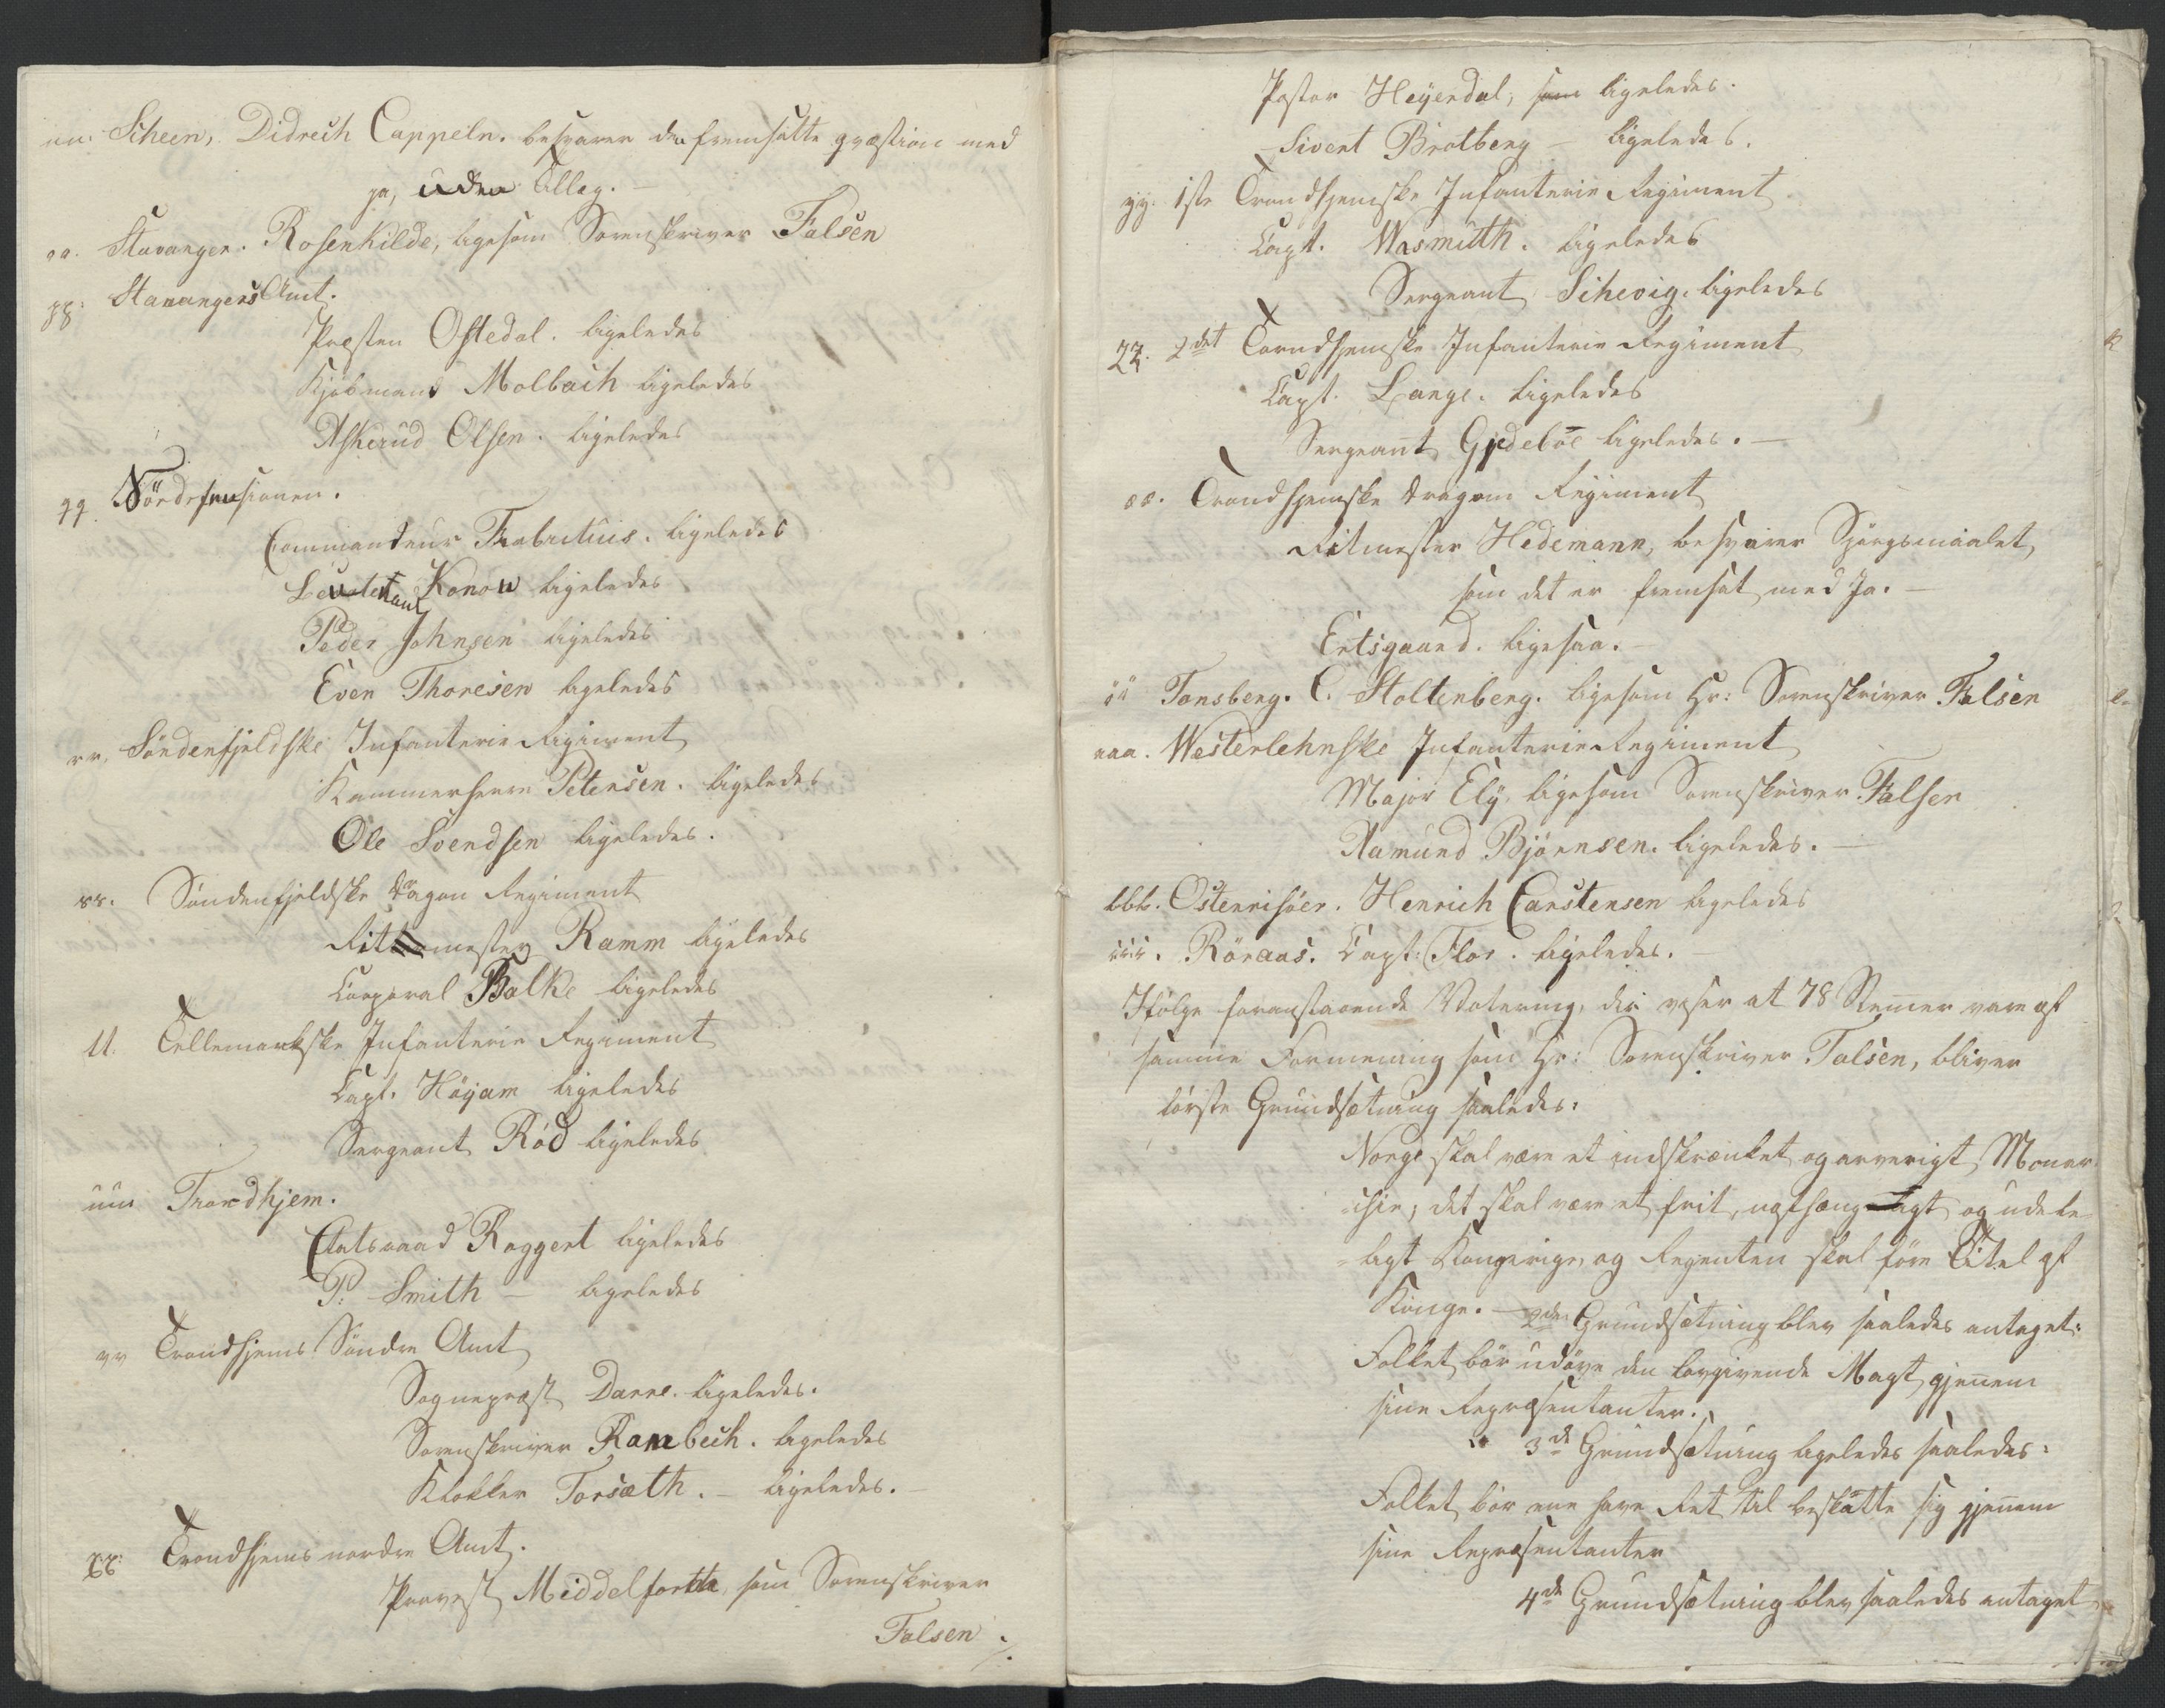 nn. Scheen, Didrech Cappeln. besvarer den fremsatte qvæstion med
ja, uden Tillæg. —
oo. Stavanger. Rosenkilde, ligesom Sorenskriver Falsen
pp: Stavangers Amt.
Præsten Oftedal. ligeledes
Kjøbmand Molbach ligeledes
Asherud Olsen. ligeledes
qq. Södefensionen.
Commandeur Fabritius. ligeledes
Leutenant Konow ligeledes
Peder Johnsen ligeledes
Even Thoresen ligeledes
rr. Söndenfjeldske Infanterie Regiment
Kammerherre Petersen. ligeledes
Ole Svendsen ligeledes.
ss. Søndenfjeldske Dragon Regiment
Ritmester Ramm ligeledes
Corporal Balke ligeledes
tt. Tellemarkske Infanterie Regiment
Capt. Höyam ligeledes
Sergeant Röd ligeledes
uu Trondhjem.
Etatsraad Roggert ligeledes
P. Smith — ligeledes
vv Trondhjems Söndre Amt
Sognepræst Darre. ligeledes.
Sorenskriver Rambech. ligeledes
Klokker Forsæth. — ligeledes. —
xx: Trondhjems nordre Amt.
Provst Middelfarth, som Sorenskriver
Falsen ./.
Pastor Heyerdal, som ligeledes.
Sivert Bratberg — ligeledes.
yy. 1ste Trondhjemske Infanterie Regiment
Capt. Wasmuth. ligeledes
Sergeant Schevig. ligeledes
zz. 2det Trondhjemske Infanterie Regiment
Capt. Lange. ligeledes
Sergeant Gjedeböe ligeledes. —
ææ. Trondhjemske Dragon Regiment
Ritmester Hedemann, besvarer Spörgsmaalet,
som det er fremsat med Ja. —
Ertsgaard. ligesaa. —
öö Tonsberg. C. Stoltenberg. ligesom Hr: Sorenskriver Falsen
aaa. Westerlehnske Infanterie Regiment
Major Ely, ligesom Sorenskriver Falsen
Aamund Björnsen. ligeledes. —
bbb. Osterrisöer. Henrich Carstensen ligeledes
ccc. Röraas. Capt: Flor. ligeledes. —
Ifölge foranstaaende Votering, der viser at 78 Stemer vare af
samme Formening som Hr: Sorenskriver Falsen, bliver
förste Grundsætning saaledes:
Norge skal være et indskrænket og arveligt Monar-
chie; det skal være et frit, uafhængigt og udele
ligt Kongerige, og Regenten skal före Titel af
Konge. — 2den Grundsætning blev saaledes antaget:
Folket bör udöve den lovgivende Magt gjennem
sine Repræsentanter.
3de Grundsætning ligeledes saaledes:
Folket bör ene have Ret til beskatte sig gjennem
sine Repræsentanter
4de Grundsætning blev saaledes antaget